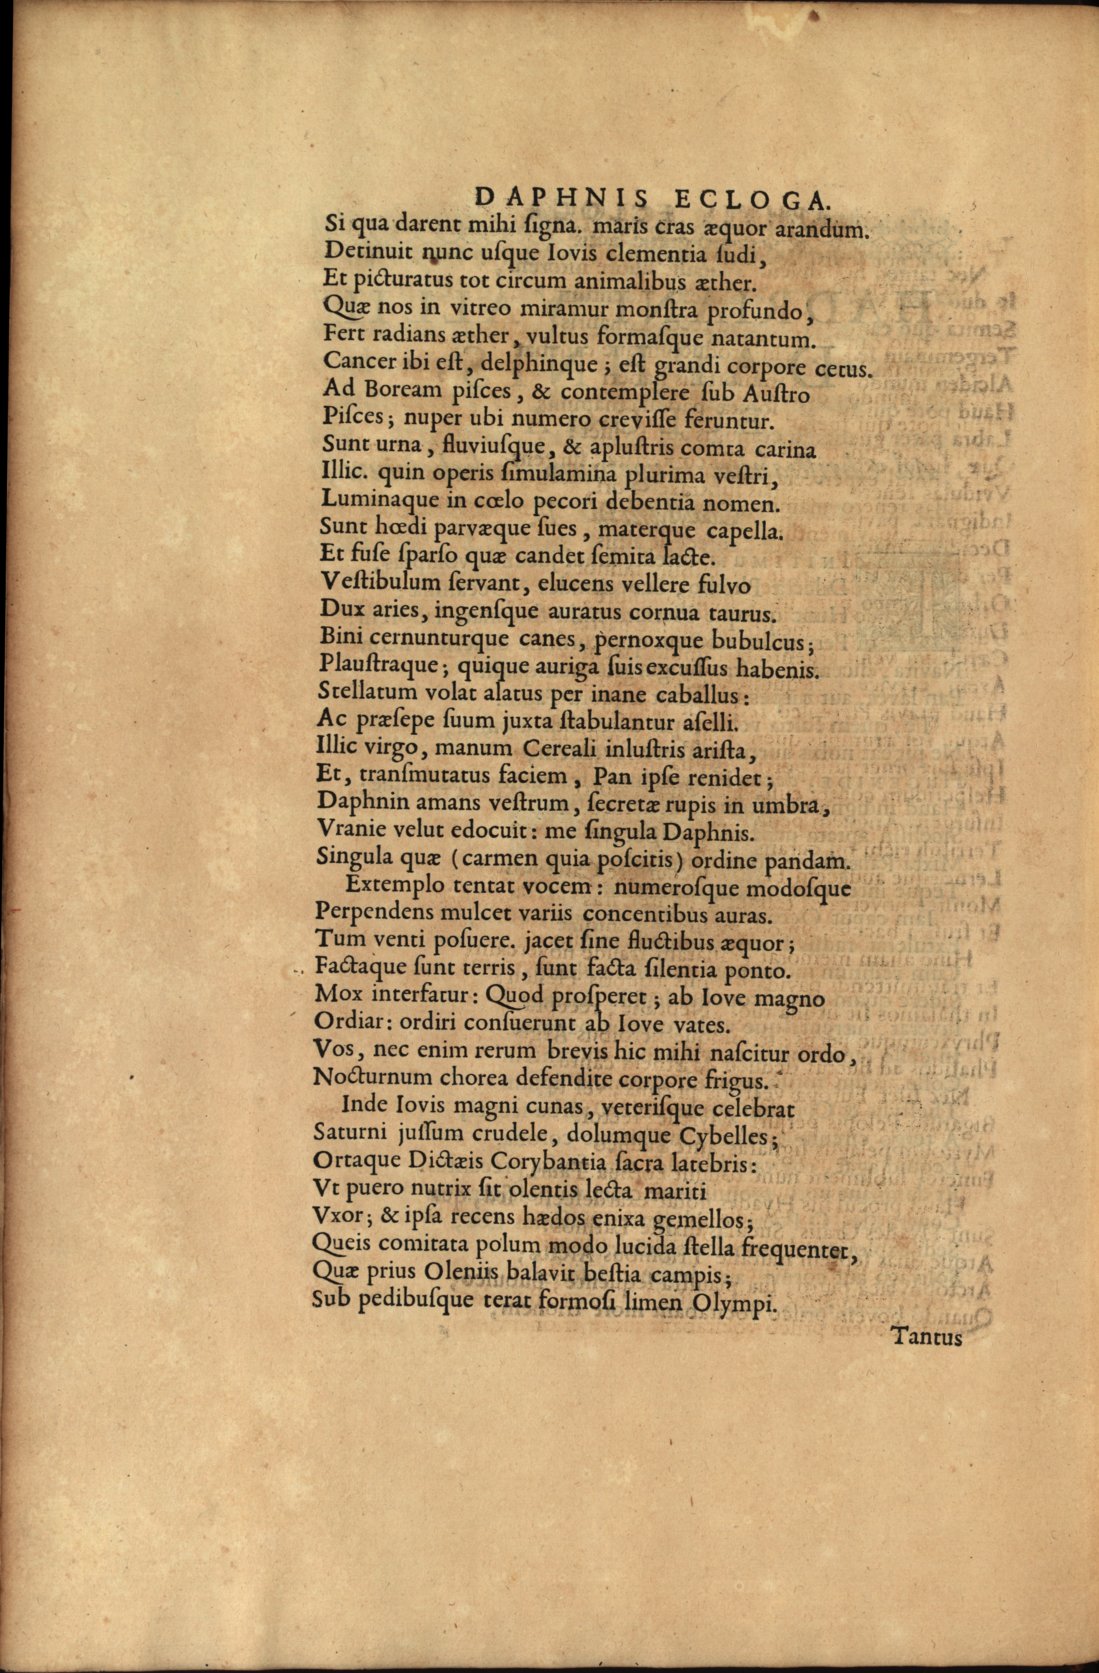 DAPHNIS ECLOGA.
Si qua darent mihi ſigna. maris cras æquor arandum.
Detinuit nunc uſque Iovis clementia ſudi,
Et picturatus tot circum animalibus æther.
Quæ nos in vitreo miramur monſtra profundo,
Fert radians æther, vultus formaſque natantum.
Cancer ibi eſt, delphinque; eſt grandi corpore cetus.
Ad Boream piſces, & contemplere ſub Auſtro
Piſces; nuper ubi numero creviſſe feruntur.
Sunt urna, fluviuſque, & apluſtris comta carina
Illic. quin operis ſimulamina plurima veſtri,
Luminaque in cœlo pecori debentia nomen.
Sunt hœdi parvæque ſues, materque capella.
Et fuſe ſparſo quæ candet ſemita lacte.
Veſtibulum ſervant, elucens vellere fulvo
Dux aries, ingenſque auratus cornua taurus.
Bini cernunturque canes, pernoxque bubulcus;
Plauſtraque; quique auriga ſuis excuſſus habenis.
Stellatum volat alatus per inane caballus:
Ac præſepe ſuum juxta ſtabulantur aſelli.
Illic virgo, manum Cereali inluſtris ariſta,
Et, tranſmutatus faciem, Pan ipſe renidet;
Daphnin amans veſtrum, ſecretæ rupis in umbra,
Vranie velut edocuit: me ſingula Daphnis.
Singula quæ (carmen quia poſcitis) ordine pandam.
Extemplo tentat vocem: numeroſque modoſque
Perpendens mulcet variis concentibus auras.
Tum venti poſuere. jacet ſine fluctibus æquor;
Factaque ſunt terris, ſunt facta ſilentia ponto.
Mox interfatur: Quod proſperet; ab Iove magno
Ordiar: ordiri conſuerunt ab Iove vates.
Vos, nec enim rerum brevis hic mihi naſcitur ordo,
Nocturnum chorea defendite corpore frigus.
Inde Iovis magni cunas, veteriſque celebrat
Saturni juſſum crudele, dolumque Cybelles;
Ortaque Dictæis Corybantia ſacra latebris:
Vt puero nutrix ſit olentis lecta mariti
Vxor; & ipſa recens hædos enixa gemellos;
Queis comitata polum modo lucida ſtella frequentet,
Quæ prius Oleniis balavit beſtia campis;
Sub pedibuſque terat formoſi limen Olympi.
Tantus